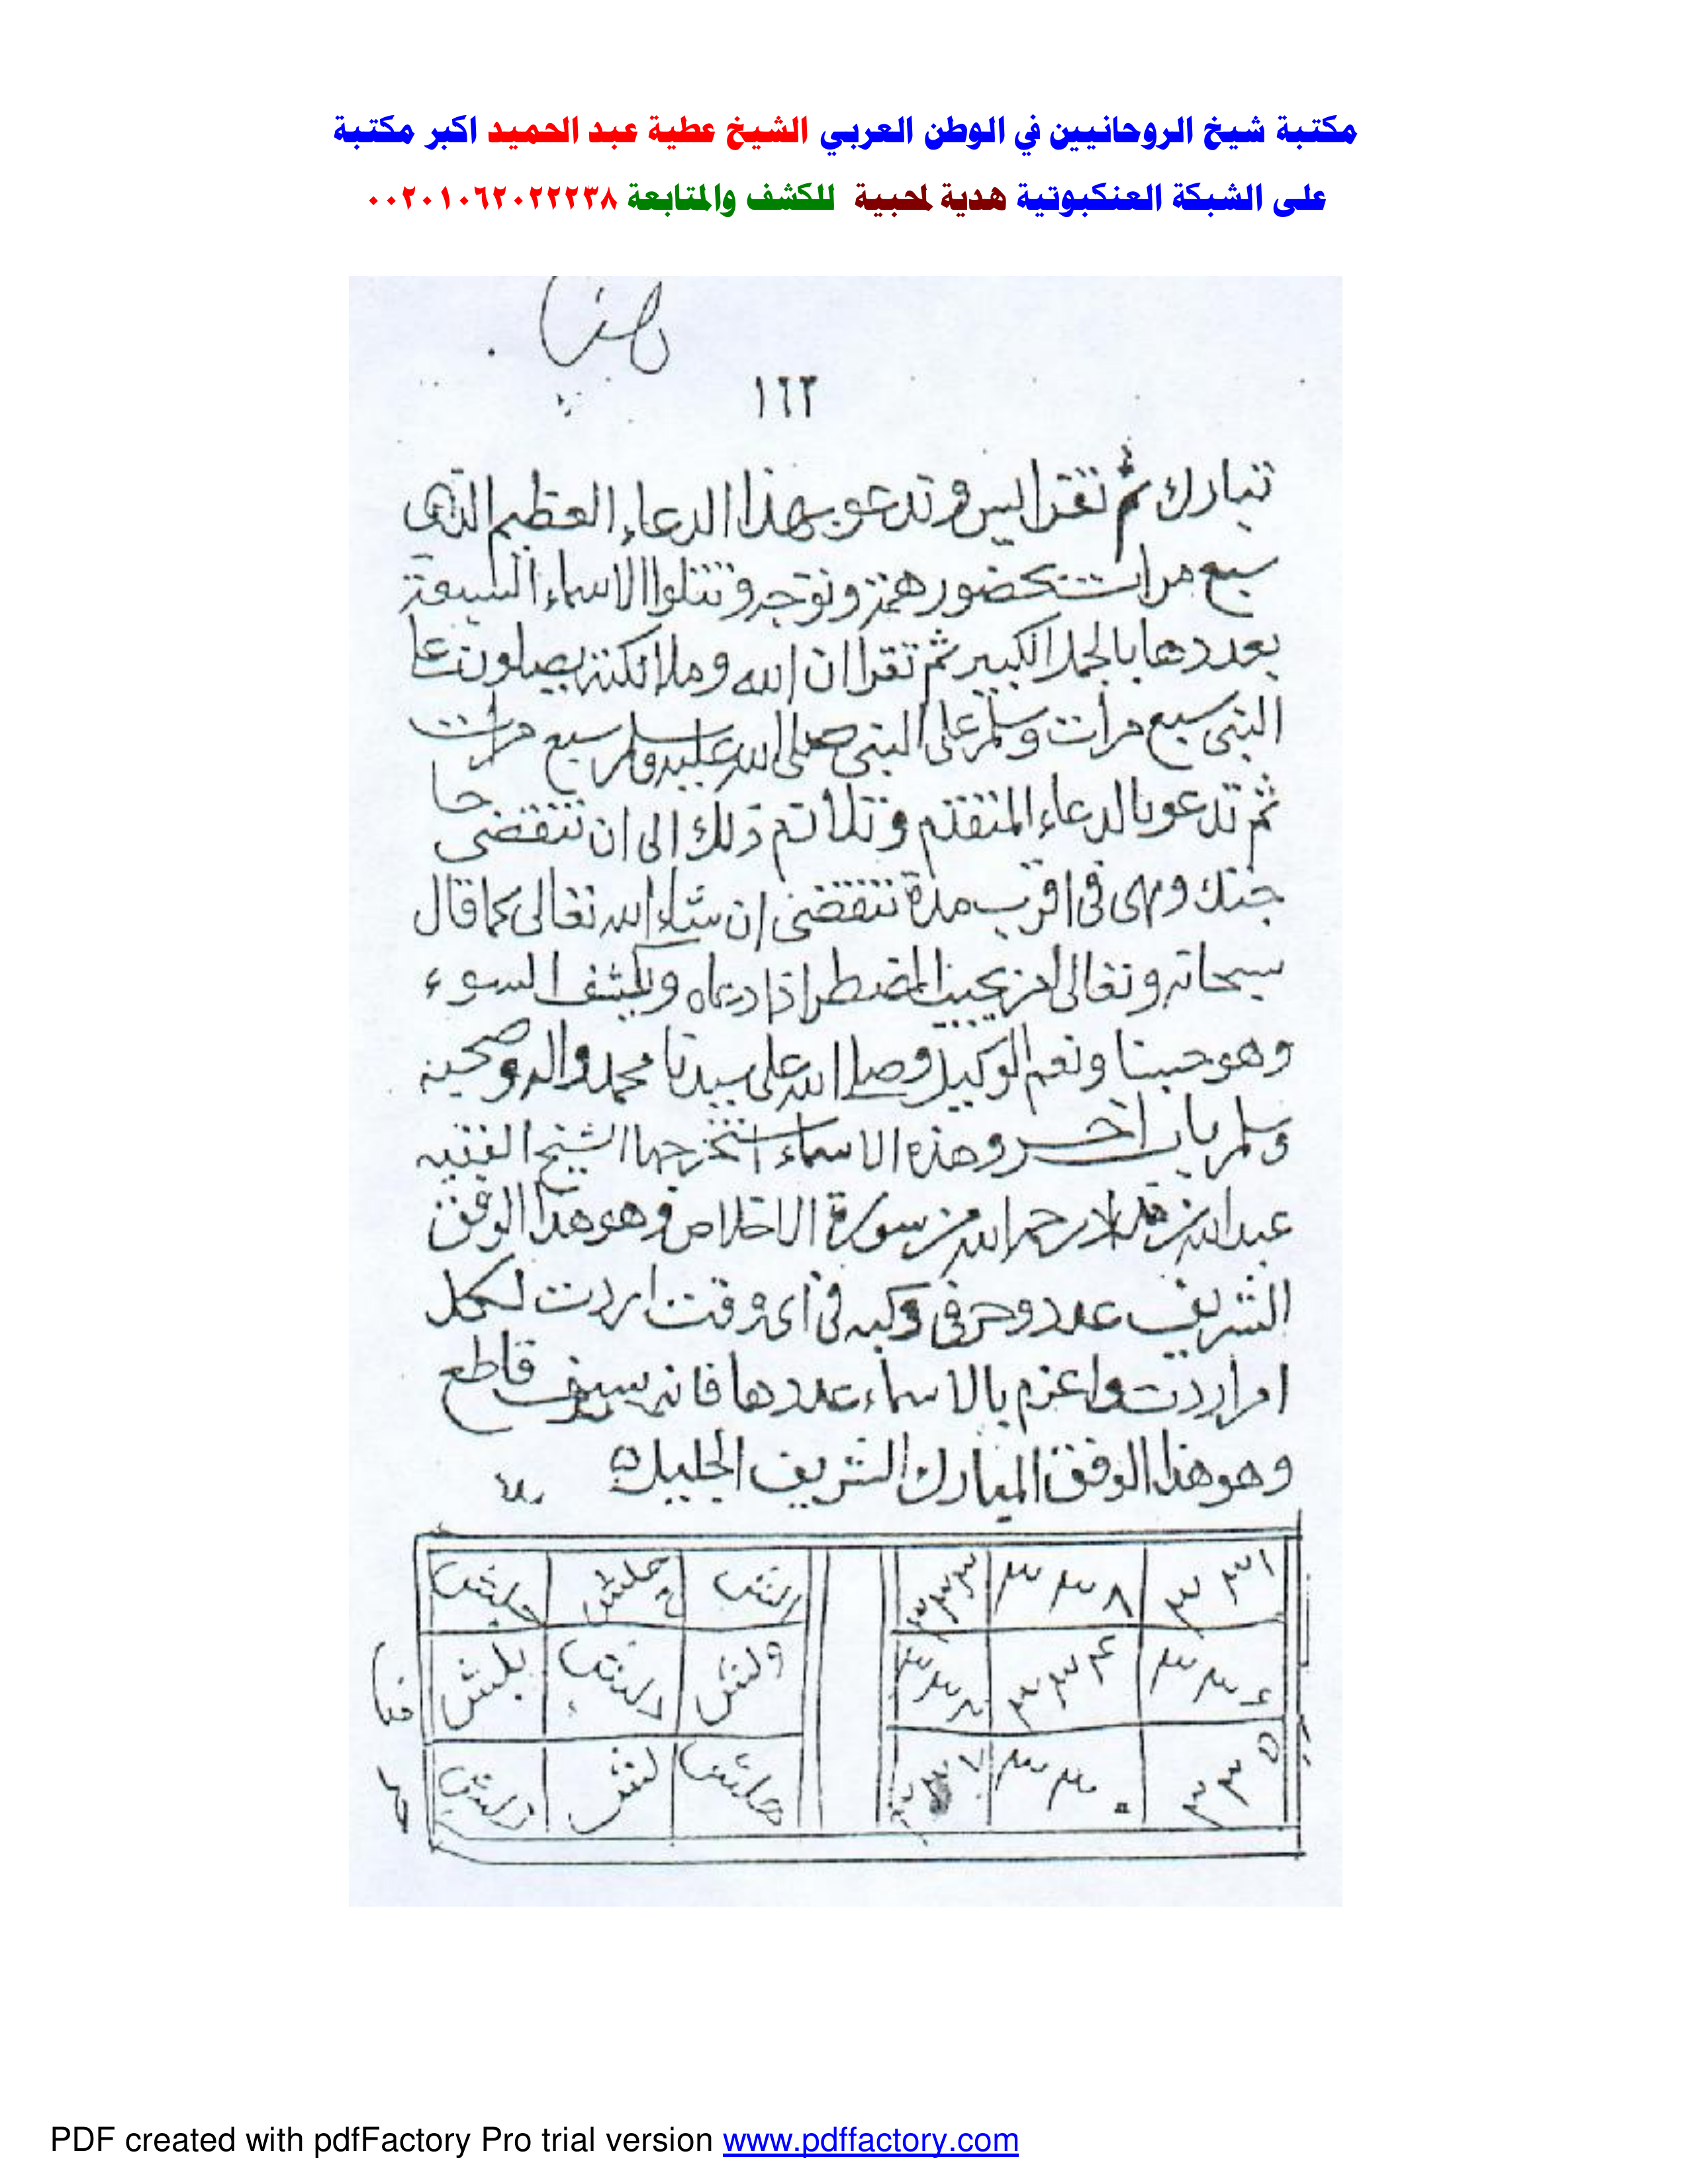 مكتبة شيخ الروحانيين في الوطن العربي الشيخ عطية عبد الحميد اكبر مكتبة
على الشبكة العنكبوتية هدية لمحبية للكشف والمتابعة ٠٠٢٠١٠٦٢٠٢٢٢٣٨
١٦٢
تبارك ثم تقرا يس وتدعو بهذا الدعاء العظيم الذى
سبع مرات بحضور همة وتوجه وتتلوا الاسماء السبعة
بعددها بالجمل الكبير ثم تقرا ان الله وملائكته يصلون على
النبى سبع مرات وسلم على النبى صلى الله عليه وسلم سبع مرات
ثم تدعو بالدعاء المتقدم وتلاتم ذلك الى ان تنقضى حا
جتك وهى فى اقرب مدة تنقضى ان شاء الله تعالى كما قال
سبحانه وتعالى امن يجيب المضطر اذا دعاه ويكشف السوء
وهو حسبنا ونعم الوكيل وصلى الله على سيدنا محمد واله وصحبه
وسلم باب اخر وهذه الاسماء استخرجها الشيخ الفقيه
عبد الله بن رحمه الله من سورة الاخلاص وهو هذا الوفق
الشريف عدد وحرفى وكبه فى اى وقت اردت لكل
امر اردت واعزم بالاسماء عددها فانه سيف قاطع
وهو هذا الوفق المبارك الشريف الجليل
٣٣١ ٣٣٨ ٣٣٣ الش حلش
٣٣٦ ٣٣٤ ٣٣٢ ولش دلش بلش
٣٣٥ ٣٣٠ ٣٣٧ هلش لش زلش
PDF created with pdfFactory Pro trial version www.pdffactory.com